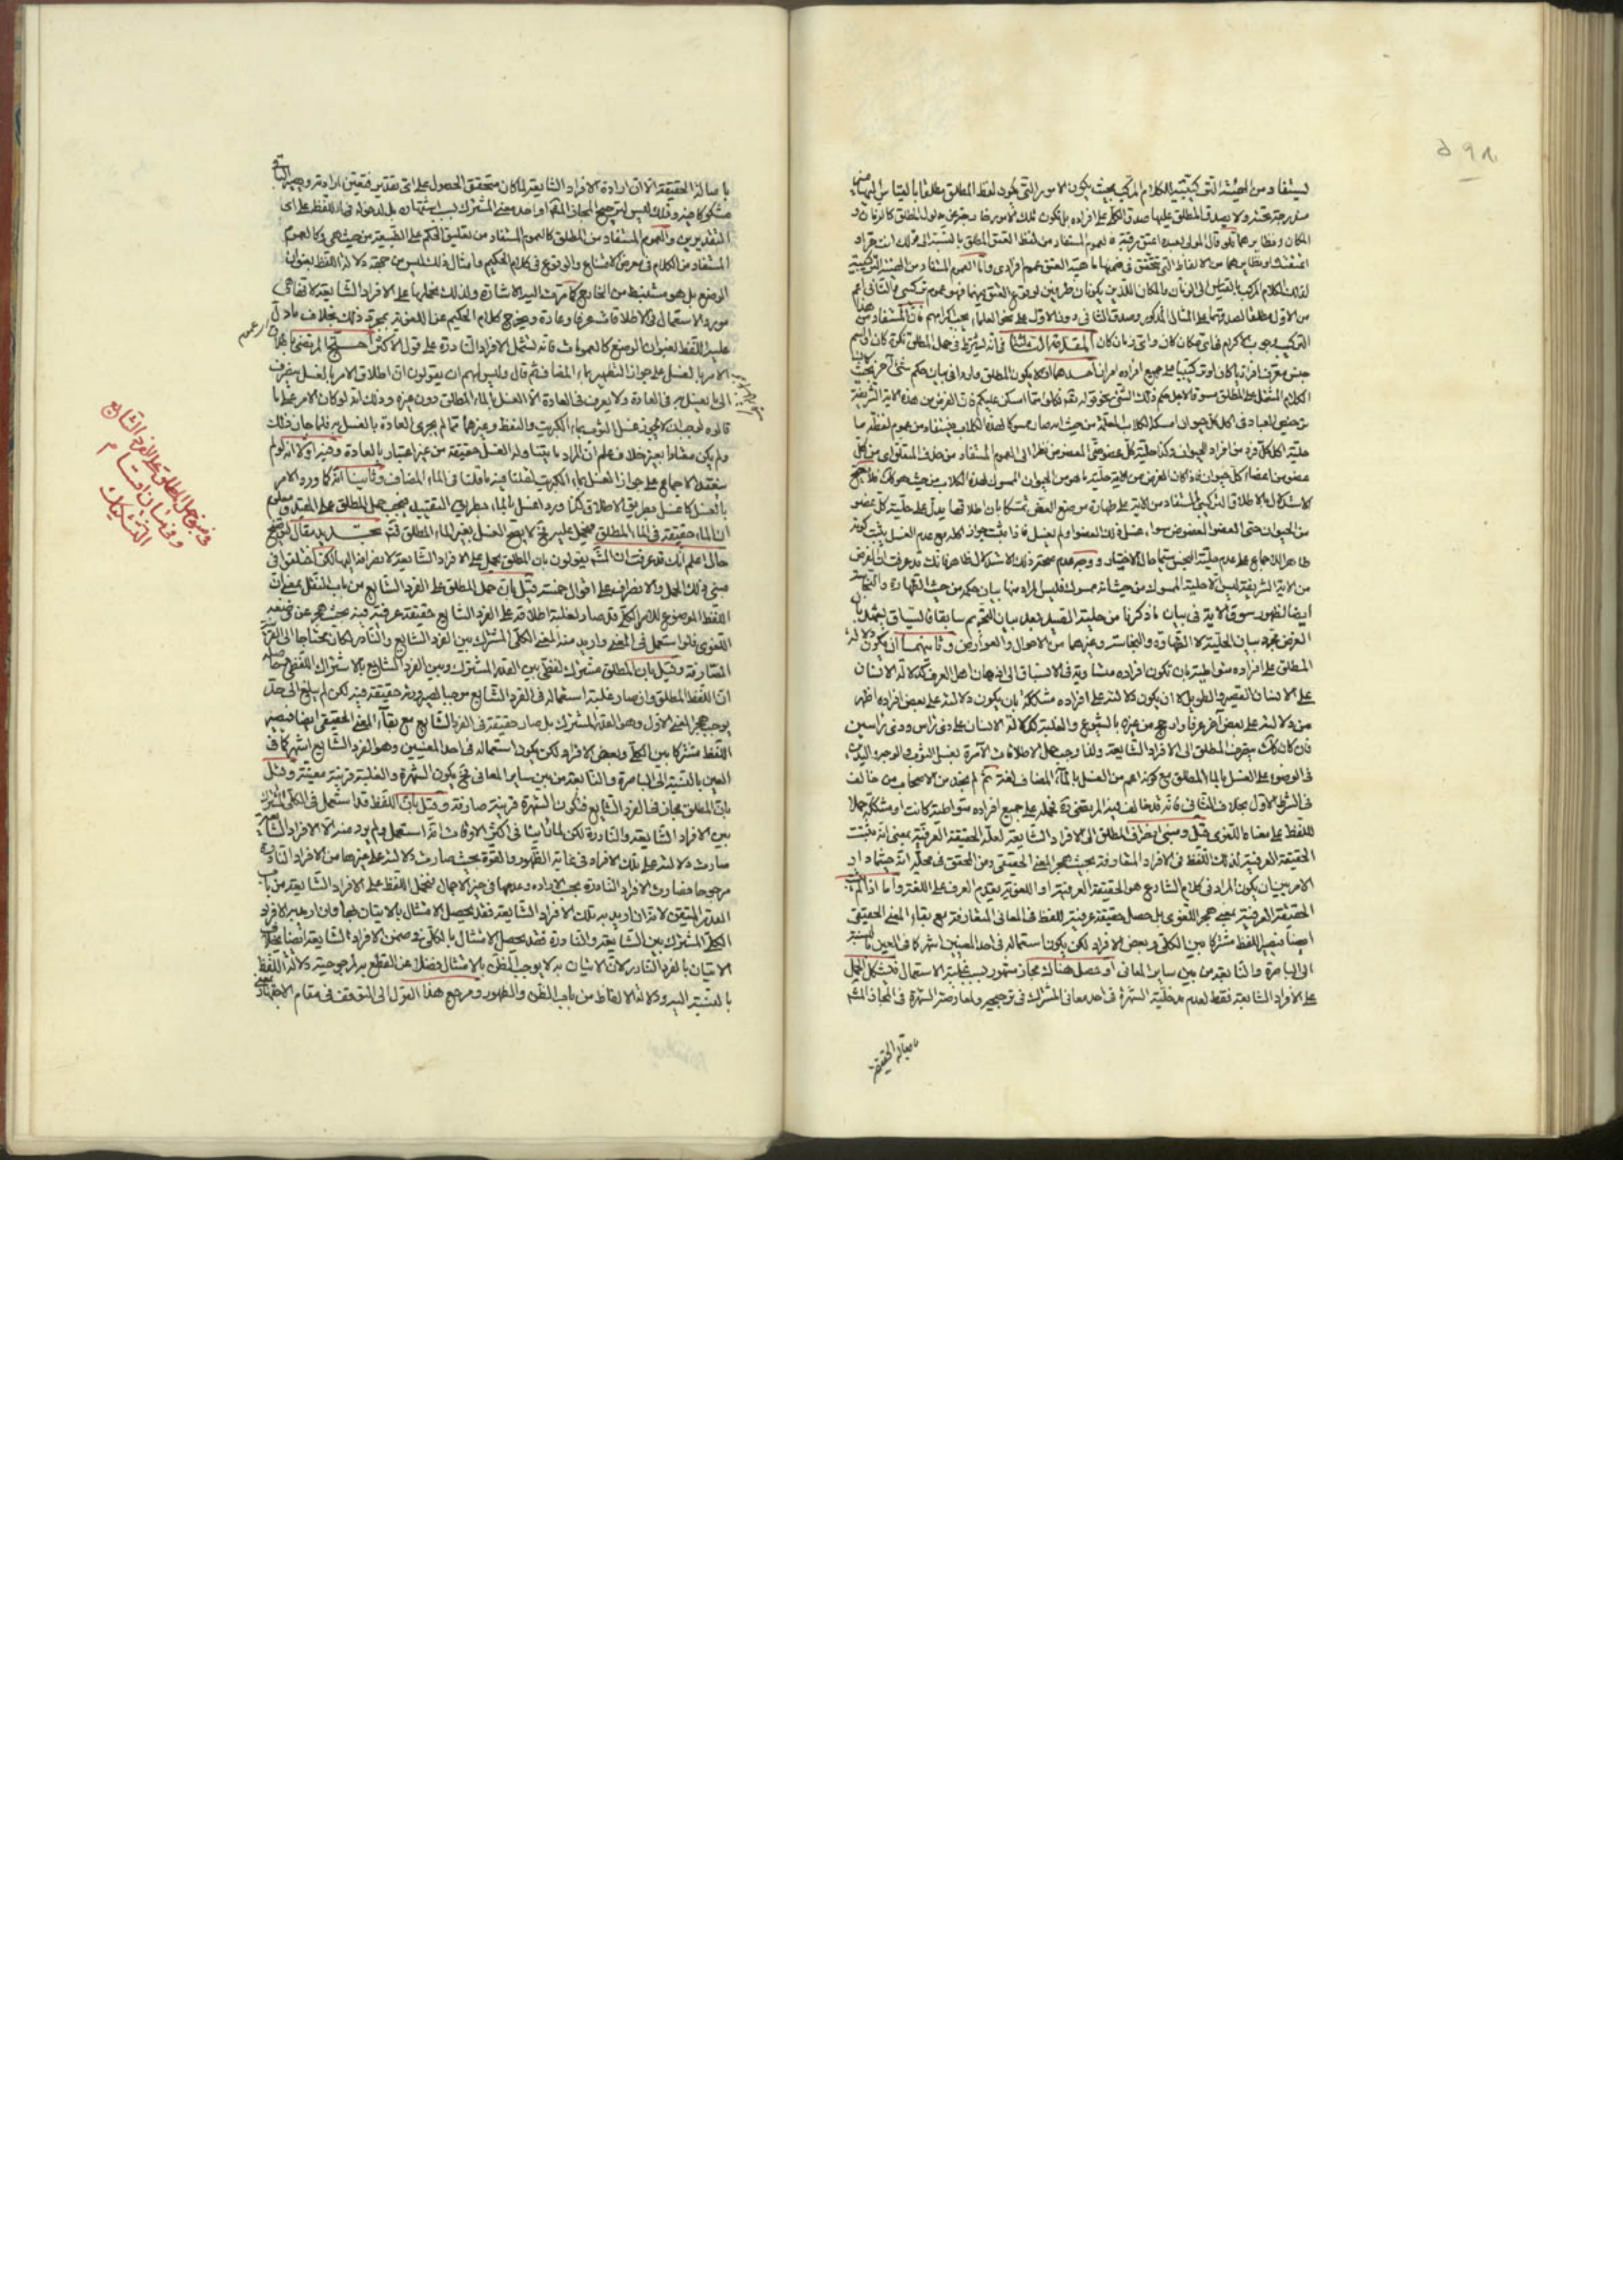 ٥٩٨
ليستفاد من الهيئة التركيبية للكلام المركب بحيث يكون الامور التى يكون لفظ المطلق مطلقا بالقياس اليها
مندرجة تحته ولا يصدق المطلق عليها صدق الكلى على افراده بل تكون تلك الامور خارجة عن مدلول المطلق كالزمان و
المكان ونظايرهما فلو قال المولى لعبده اعتق رقبة فالعموم المستفاد من لفظ العتق المطلق بالنسبة الى قولك انت حر او
اعتقتك او نظايرهما من الالفاظ التى يتحقق فى ضمنها ماهية العتق عموم افرادى واما العموم المستفاد من الهيئة التركيبية
لذلك الكلام المركب بالقياس الى الزمان والمكان اللذين يكونان ظرفين لوقوع العتق فيهما فهو عموم تركيبى والثانى اعم
من الاول مطلقا لصدقهما على المثال المذكور وصدق الثانى دون الاول على نحو العلماء يجب اكرامهم فان المستفاد من هذا
التركيب وجوب الاكرام فى اى مكان كان واى زمان كان المقدمة الثالثة فى انه يشترط فى حمل المطلق نكرة كان او اسم
جنس معرف افراديا كان او تركيبيا على جميع افراده امران احدهما ان لا يكون المطلق واردا فى بيان حكم شئ آخر بحيث كان
الكلام المشتمل على المطلق مسوقا لاجل حكم ذلك الشئ نحو قوله تعم فكلوا مما امسكن عليكم فان الغرض من هذه الاية الشريفة
ترخيص العباد فى اكل كل حيوان امسكه الكلاب المعلمة من حيث انه صار ممسوكا لهذه الكلاب فيستفاد من عموم لفظة ما
حلية اكل كل فرد من افراد الحيوان وكذا حلية كل عضو حتى المعضوض نظرا الى العموم المستفاد من حذف المتعلق اى من كل
عضو من اعضاء كل حيوان فاذا كان الغرض من الاية حلية ما هو من الحيوان الممسوك لهذه الكلاب من حيث هو كك فلا يصح
الاستدلال بالاطلاق التركيبى المستفاد من الاية على طهارة موضع العض تمسكا بان اطلاقها يدل على حلية كل عضو
من الحيوان حتى العضو المعضوض سواء غسل ذلك العضو او لم يغسل فاذا ثبت جواز اكله مع عدم الغسل يثبت كونه
طاهرا للاجماع على عدم حلية النجس سيما حال الاختيار ووجه عدم صحة ذلك الاستدلال ظاهر فانك قد عرفت ان الغرض
من الاية الشريفة ليس الا حلية الممسوك من حيث انه ممسوك فليس المراد منها بيان حكمه من حيث الطهارة والنجاسة
ايضا لظهور سوق الاية فى بيان ما ذكرنا من حلية الصيد بعد بيان التحريم سابقا فالسياق يشهد بان
الغرض مجرد بيان الحلية لا الطهارة والنجاسة وغيرهما من الاحوال والعوارض وثانيهما ان يكون دلالة
المطلق على افراده متواطية بان تكون افراده متساوية فى الانسباق الى اذهان اهل العرف كدلالة الانسان
على الانسان القصير والطويل لا ان يكون دلالته على افراده مشككة بان يكون دلالته على بعض افراده اظهر
من دلالته على بعض اخر عرفا وارجح من غيره بالشيوع والغلبة كدلالة الانسان على ذى رأس وذى رأسين
فان كان كك ينصرف المطلق الى الافراد الشايعة ولذا وجب حمل الاطلاقات الآمرة بغسل الثوب والوجه واليدين
فى الوضوء على الغسل بالماء المطلق مع كونه اعم من الغسل بالماء المضاف لغة ثم لم نجد من الاصحاب من خالف
فى الشرط الاول بخلاف الثانى فانه قد خالف فيه المرتضى ره فحمله على جميع افراده متواطية كانت او مشككة حملا
للفظ على معناه اللغوى قيل ومبنى انصراف المطلق الى الافراد الشايعة لعله الحقيقة العرفية بمعنى انه يثبت
الحقيقة العرفية لذلك اللفظ فى الافراد المتعارفة بحيث هجر المعنى الحقيقى ومن المحقق فى محله انه حينما دار
الامر بين ان يكون المراد فى كلام الشارع هو الحقيقة العرفية او اللغوية يقدم العرف على اللغة واما اذا لم يثبت
الحقيقة العرفية بمعنى هجر اللغوى بل حصل حقيقة عرفية للفظ فى المعانى المتعارفة مع بقاء المعنى الحقيقى
ايضا فيصير اللفظ مشتركا بين الكلى وبعض الافراد لكن يكون استعماله فى احد المعنيين اشهر كما فى العين بالنسبة
الى الباصرة والنابعة من بين ساير المعانى او حصل هناك مجاز مشهور بسبب غلبة الاستعمال فيشكل الحمل
على الافراد الشايعة فقط لعدم مدخلية الشهرة فى احد معانى المشترك فى ترجيحه ولمعارضة الشهرة فى المجاز المشهور
باصالة الحقيقة
باصالة الحقيقة الا ان ارادة الافراد الشايعة لما كان متحقق الحصول على اى تقدير فتعين ارادته ويصير الباقى
مشكوكا فيه وذلك ليس لترجيح المجاز المشهور او احد معنى المشترك بسبب اشتهاره بل لدخوله فى اللفظ على اى
التقديرين والعموم المستفاد من المطلق كالعموم المستفاد من تعليق الحكم على الطبيعة من حيث هى وكالعموم
المستفاد من الكلام فى معرض الامتنان والوقوع فى كلام الحكيم وامثال ذلك ليس من جهة دلالة اللفظ بعنوان
الوضع بل هو مستنبط من الخارج كما مرت اليه الاشارة ولذلك نحملها على الافراد الشايعة لاتفاقهى
مورد الاستعمال فى الاطلاقات عرفا وعادة ويخرج كلام الحكيم عن اللغوية بمجرد ذلك بخلاف ما دل
عليه اللفظ بعنوان الوضع كالعمومات فانه يشمل الافراد النادرة على قول الاكثر احتج المرتضى
الامر بالغسل على جواز التطهير بماء المضاف ثم قال وليس لهم ان يقولون ان اطلاق الامر بالغسل ينصرف
الى ما يغسل به فى العادة ولا يعرف فى العادة الا الغسل بالماء المطلق دون غيره وذلك انه لو كان الامر على ما
قالوه لوجب ان لا يجوز غسل الثوب بماء الكبريت والنفط وغيرهما مما لم يجرى العادة بالغسل به فلما جاز ذلك
ولم يكن مشاذا بغير خلاف علم ان المراد ما يتناوله الغسل حقيقة من غير اعتبار بالعادة وفيه اولا انه لو لم
ينعقد الاجماع على جواز الغسل بماء الكبريت لقلنا فيه ما قلنا فى الماء المضاف وثانيا انه كما ورد الامر
بالغسل كاغسل بطريق الاطلاق كذا ورد اغسل بالماء بطريق التقييد فيجب حمل المطلق على المقيد ومعلوم
ان الماء حقيقة فى الماء المطلق فيحمل عليه فلا يصح الغسل بغير الماء المطلق فتم تجديد مقال لتوضيح
حال اعلم انك قد عرفت ان المشهور يقولون بان المطلق يحمل على الافراد الشايعة لانصرافه اليها لكن اختلفوا فى
مبنى ذلك الحمل والانصراف على اقوال خمسة فقيل بان حمل المطلق على الفرد الشايع من باب النقل بمعنى ان
اللفظ الموضوع للامر الكلى قد صار لغلبة اطلاقه على الفرد الشايع حقيقة عرفية فيه بحيث هجر عن وضعه
اللغوى فلو استعمل فى المعنى واريد منه المعنى الكلى المشترك بين الفرد الشايع والنادر لكان محتاجا الى القرينة
الصارفة وقيل بان المطلق مشترك لفظى بين القدر المشترك وبين الفرد الشايع بالاشتراك اللفظى بمعنى
ان اللفظ المطلق وان صار غلبة استعماله فى الفرد الشايع موجبا لصيرورته حقيقة فيه لكن لم يبلغ الى حد
يوجب هجر المعنى الاول وهو القدر المشترك بل صار حقيقة فى الفرد الشايع مع بقاء المعنى الحقيقى ايضا فيصير
اللفظ مشتركا بين الكلى وبعض الافراد لكن يكون استعماله فى احد المعنيين وهو الفرد الشايع اشهر كما فى
العين بالنسبة الى الباصرة والنابعة من بين ساير المعانى فح يكون الشهرة والغلبة قرينة معينة وقيل
بان المطلق مجاز فى الفرد الشايع فتكون الشهرة قرينة صارفة وقيل بان اللفظ قد استعمل فى الكلى المشترك
بين الافراد الشايعة والنادرة لكن لما رأينا فى اكثر الاوقات انه استعمل ولم يرد منه الا الافراد الشايعة
صارت دلالته على تلك الافراد فى غاية الظهور والقوة بحيث صارت دلالته على غيرها من الافراد النادرة
مرجوحا فصارت الافراد النادرة بحسب الارادة وعدمها فى حيز الاجمال فنحمل اللفظ على الافراد الشايعة من باب
القدر المتيقن لانه ان اريد به تلك الافراد الشايعة فقد يحصل الامتثال بالاتيان بها وان اريد به الافراد
الكلى المشترك بين الشايعة والنادرة فقد يحصل الامتثال بالكلى فى ضمن الافراد الشايعة ايضا بخلاف
الاتيان بالفرد النادر لان الاتيان به لا يوجب الظن بالامتثال فضلا عن القطع به لمرجوحية دلالة اللفظ
بالنسبة اليه ودلالة الالفاظ من باب الظن والظهور ومرجع هذا القول الى التوقف فى مقام الاجتهاد
فى وجه حمل المطلق على الفرد الشايع
وفى بيان اقسام
التشكيك